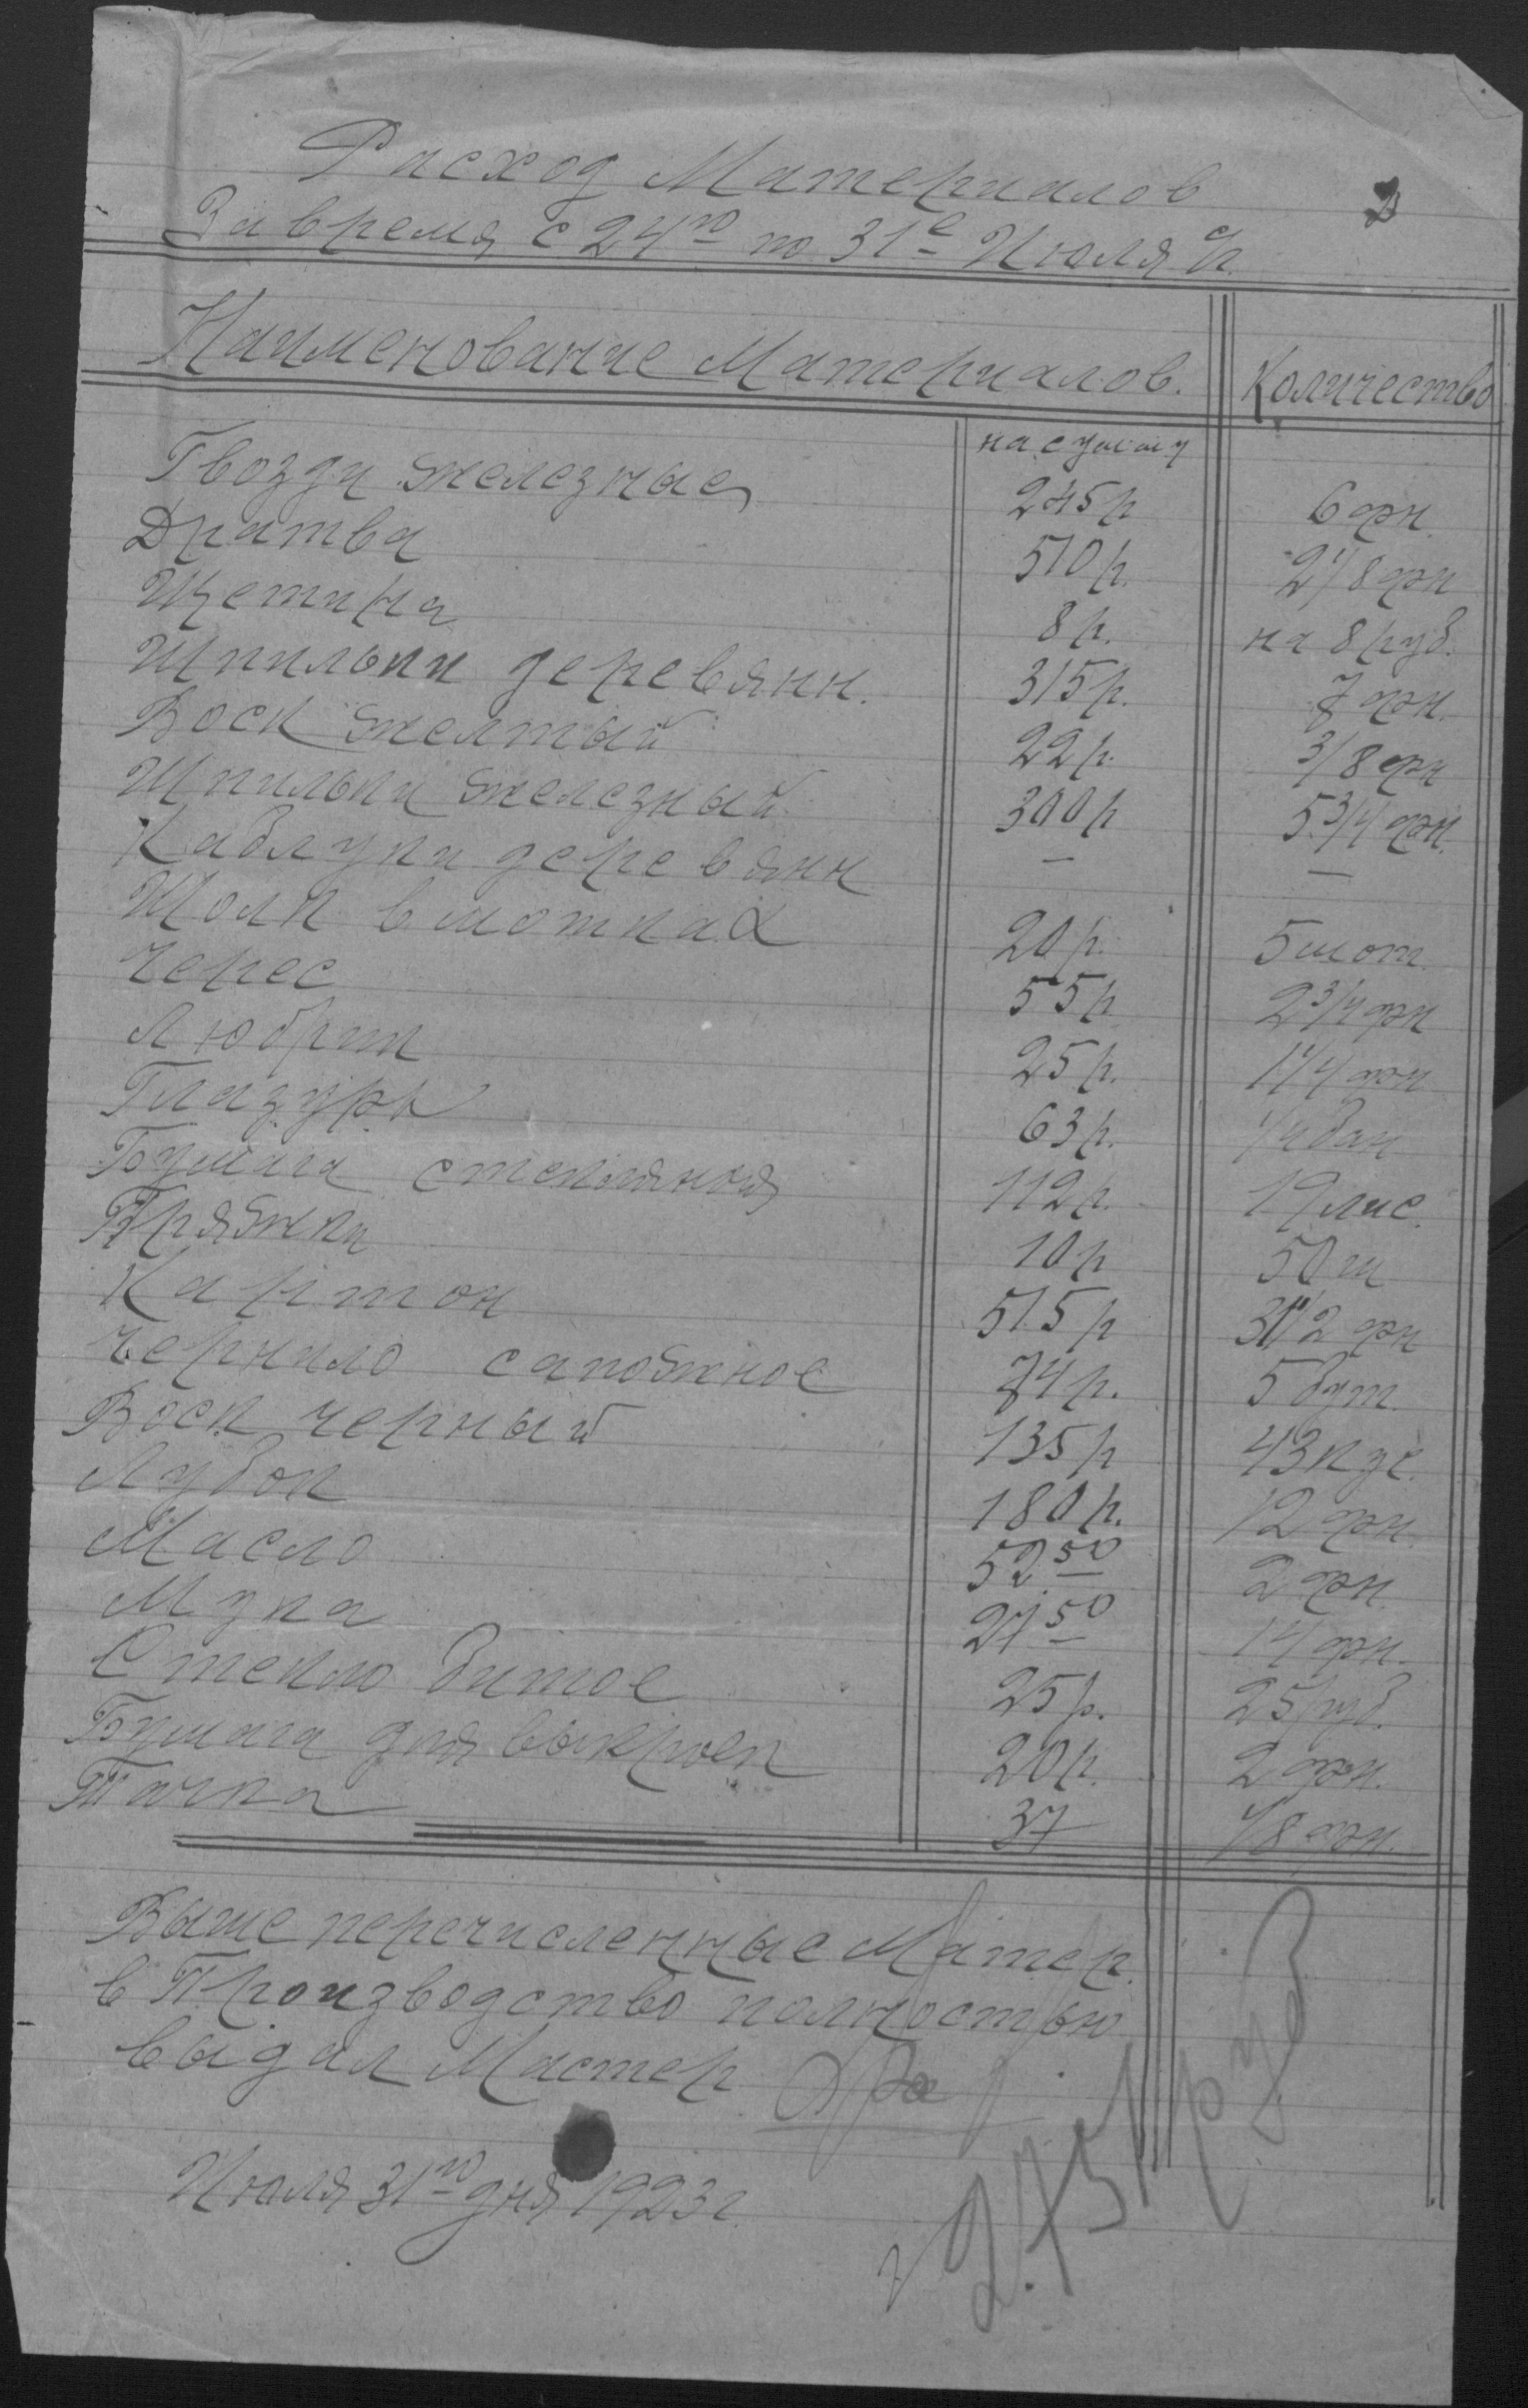 Расход Материалов
За время с 24го по 31е Июля с/г.
Наименование Материалов. Количество
на сумму
Гвозди железные 245р 6 фн.
Дратва 510р. 2 1/8 фн
Щетина 8р. на 8 руб.
Шпильки деревянн. 315р. 7 фн.
Воск желтый 22р. 3/8 фн
Шпильки железный 300р 5 3/4 фн.
Каблуки деревянн — —
Шолк в мотках 20р. 5 мот.
Черес 55р. 2 3/4 фн
Любрит 25р. 1 1/4 фн
Глазурь 63р. 1/4 бан
Бумага стеклянная 112р. 19 лис.
Пряжки 10р 50 ш
Картон 515р 31 1/2 фн
Чернило сапожное 74р. 5 бут.
Воск черный 135р 43 кус.
Лубок 180р. 12 фн.
Масло 52.50 2 фн.
Мука 27.50 14 фн.
Стекло битое 25р. 25 руб.
Бумага для выкроек 20р. 2 фн.
Тачка 37 1/8 фн.
Выше перечисленные Матер.
в Производство полностью
выдал Мастер
2.751 руб
Июля 31го дня 1923 г.